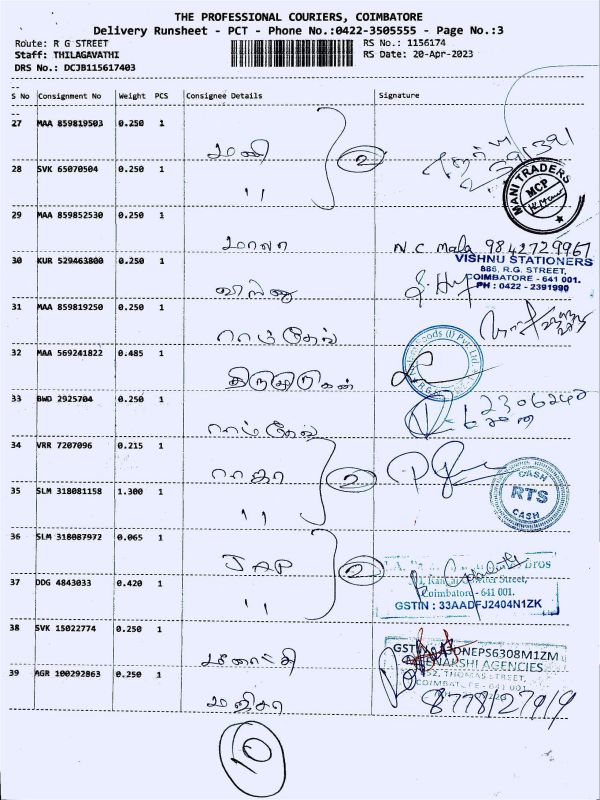 THE PROFESSIONAL COURIERS, COIMBATORE
Delivery Runsheet - PCT - Phone No.:0422-3505555 - Page No.:3
Route: R G STREET
Staff: THILAGAVATHI
DRS No.: DCJB115617403
RS No.: 1156174
RS Date: 20-Apr-2023
S No Consignment No Weight PCS Consignee Details Signature
27 MAA 859819503 0.250 1 மணி 2
28 SVK 65070504 0.250 1 "
MANI TRADERS MCP
29 MAA 859852530 0.250 1 மாலா N.C Mala 9842729967
30 KUR 529463800 0.250 1 விஷ்ணு
VISHNU STATIONERS
886, R.G. STREET,
COIMBATORE - 641 001.
PH : 0422 - 2391990
31 MAA 859819250 0.250 1
32 MAA 569241822 0.485 1
33 BWD 2925704 0.250 1
34 VRR 7207096 0.215 1 ராதா 2
35 SLM 318081158 1.300 1 "
CASH RTS CASH
36 SLM 318087972 0.065 1 JAP 2
37 DDG 4843033 0.420 1 "
Street,
Coimbatore - 641 001.
GSTIN : 33AADFJ2404N1ZK
38 SVK 15022774 0.250 1 மீனாட்சி
AGENCIES
THOMAS STREET,
39 AGR 100292863 0.250 1 8778127919
10